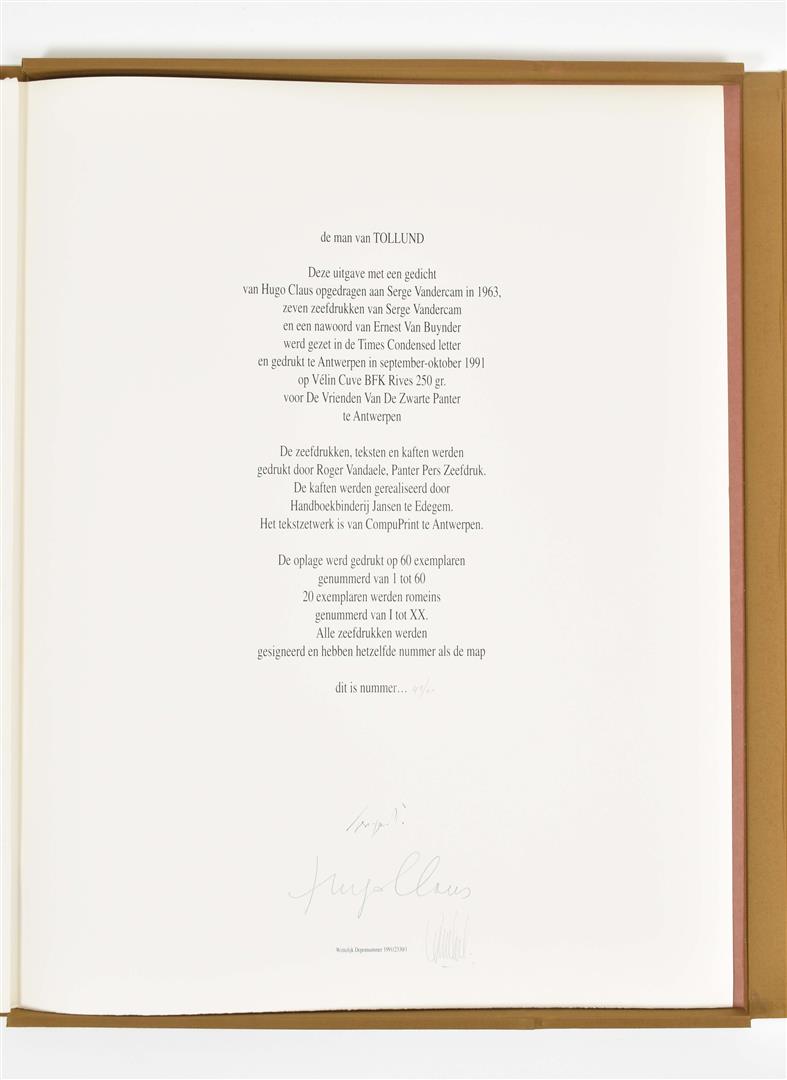 de man van TOLLUND
Deze uitgave met een gedicht
van Hugo Claus opgedragen aan Serge Vandercam in 1963,
zeven zeefdrukken van Serge Vandercam
en een nawoord van Ernest Van Buynder
werd gezet in de Times Condensed letter
en gedrukt te Antwerpen in september-oktober 1991
op Vélin Cuve BFK Rives 250 gr.
voor De Vrienden Van De Zwarte Panter
te Antwerpen
De zeefdrukken, teksten en kaften werden
gedrukt door Roger Vandaele, Panter Pers Zeefdruk.
De kaften werden gerealiseerd door
Handboekbinderij Jansen te Edegem.
Het tekstzetwerk is van CompuPrint te Antwerpen.
De oplage werd gedrukt op 60 exemplaren
genummerd van 1 tot 60
20 exemplaren werden romeins
genummerd van I tot XX.
Alle zeefdrukken werden
gesigneerd en hebben hetzelfde nummer als de map
dit is nummer...
Hugo Claus
Wettelijk Depotnummer